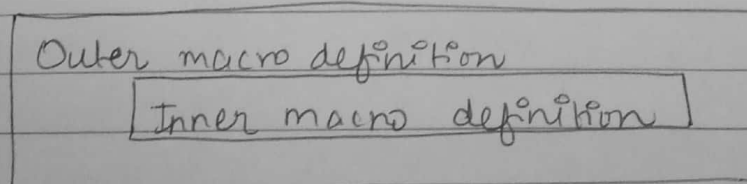 Outer macro definition
Inner macro definition